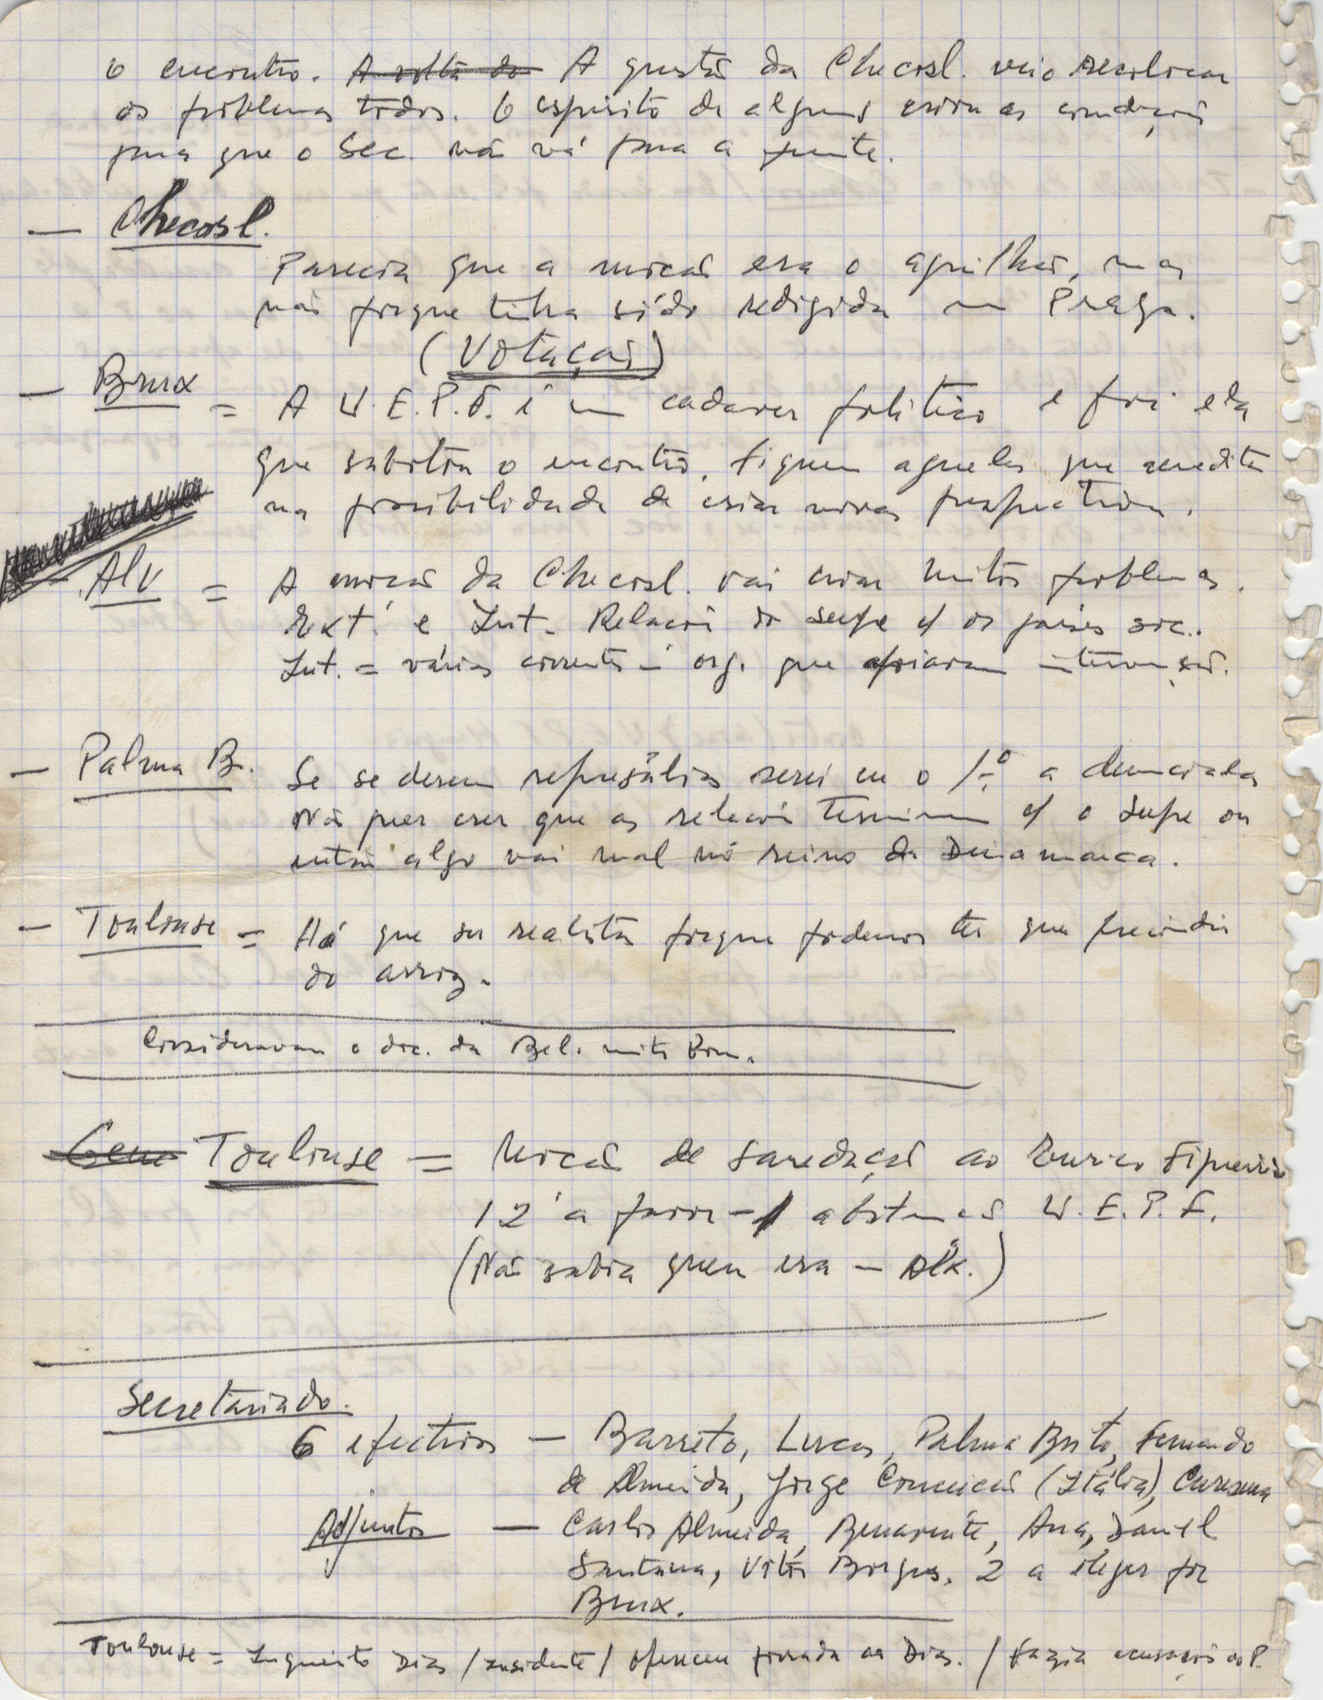 o encontro. A volta do A questão da Checosl. veio recolocar
os problemas todos. O espírito de alguns criou as condições
para que o Sec. não vá para a frente.
— Checosl.
Parecia que a moção era o aguilhão, mas
não porque tinha sido redigida em Praga.
(Votação)
— Brux = A U.E.P.F. é um cadaver político e foi ela
que sabotou o encontro. Fiquem aqueles que acreditam
na possibilidade de criar novas perspectivas.
— Alv = A moção da Checosl. vai criar muitos problemas.
Ext. e Int. Relações do Seupe c/ os países soc.
Int. = várias correntes e org. que apoiaram intervenção.
— Palma B. Se se derem represálias serei eu o 1º a denunciá-las
Não quer crer que as relações terminem c/ o Seupe ou
então algo vai mal no reino da Dinamarca.
— Toulouse = Há que ser realista porque podemos ter que prescindir
do arroz.
Consideravam o doc. da Bel. muito bom.
Toulouse = Moção de saudação ao Eurico Figueiredo
12 a favor - 1 abstenção U.E.P.F.
(Não sabia quem era —
Secretariado.
6 efectivos — Barreto, Lucas, Palma Brito, Fernando
de Almeida, Jorge Conceição (Itália), Caresma
Adjuntos — Carlos Almeida, Benavente, Ana, Daniel
Santana, Vitor Borges. 2 a eleger por
Brux.
Toulouse = Inquérito Dias / / ofereceu porrada ao Dias. / Fazia acusações ao P.